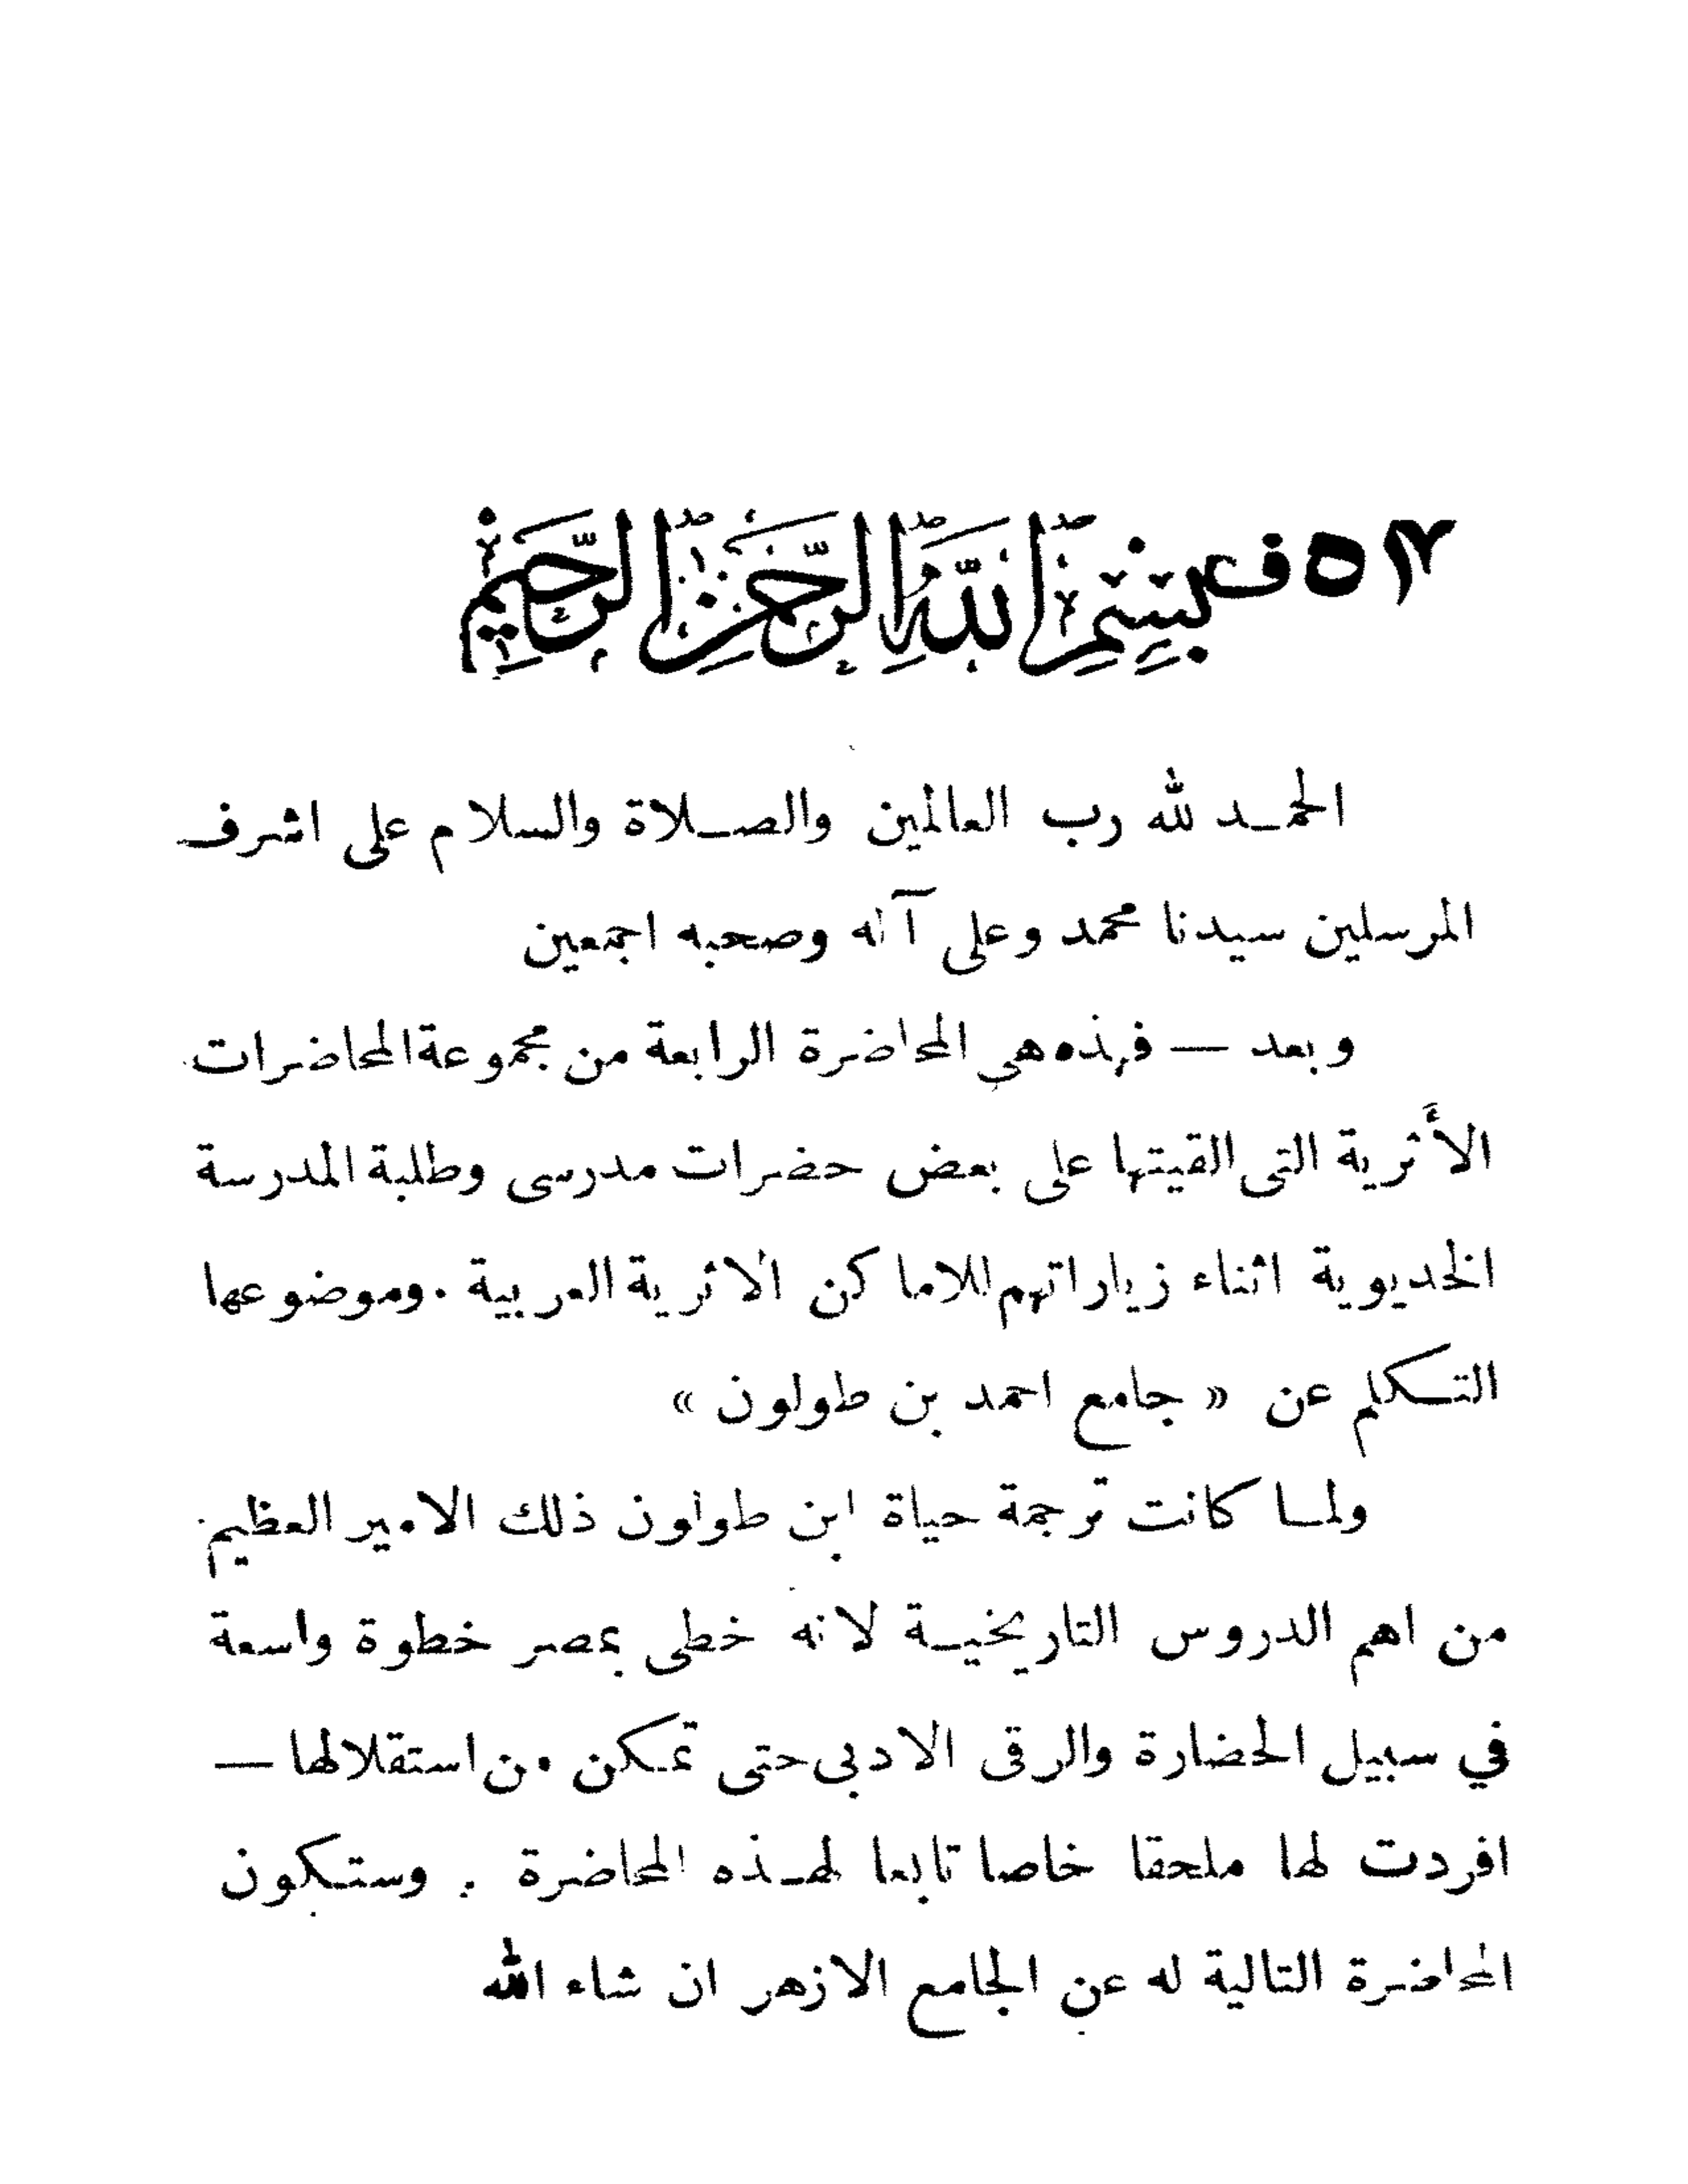 بِسْمِ اللَّهِ الرَّحْمَنِ الرَّحِيمِ
الحمد لله رب العالمين والصلاة والسلام على اشرف
المرسلين سيدنا محمد وعلى آله وصحبه اجمعين
وبعد — فهذه هي المحاضرة الرابعة من مجموعة المحاضرات
الأثرية التى القيتها على بعض حضرات مدرسى وطلبة المدرسة
الخديوية اثناء زياراتهم للاماكن الاثرية العربية . وموضوعها
التكلم عن « جامع احمد بن طولون »
ولما كانت ترجمة حياة ابن طولون ذلك الامير العظيم
من اهم الدروس التاريخية لانه خطى بمصر خطوة واسعة
في سبيل الحضارة والرقى الادبى حتى تمكن من استقلالها —
افردت لها ملحقا خاصا تابعا لهذه المحاضرة . وستكون
المحاضرة التالية له عن الجامع الازهر ان شاء الله